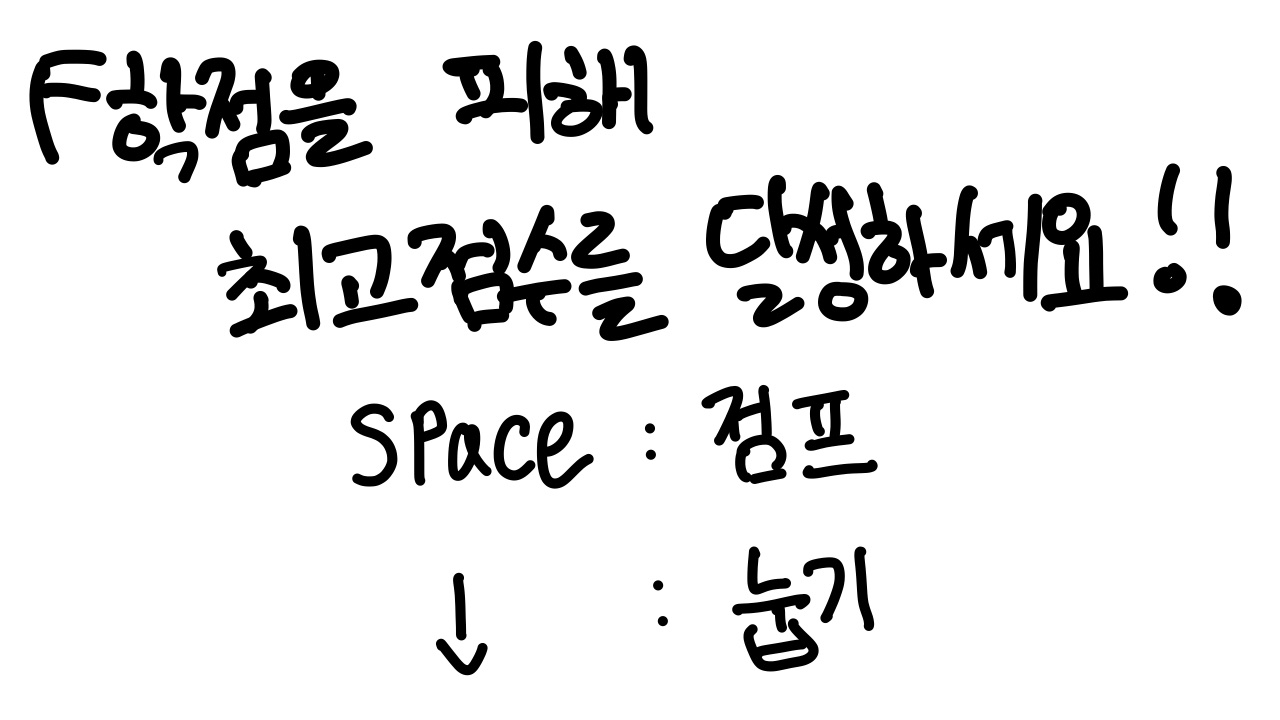 F학점을 피해
최고점수를 달성하세요!!
space : 점프
↓ : 눕기